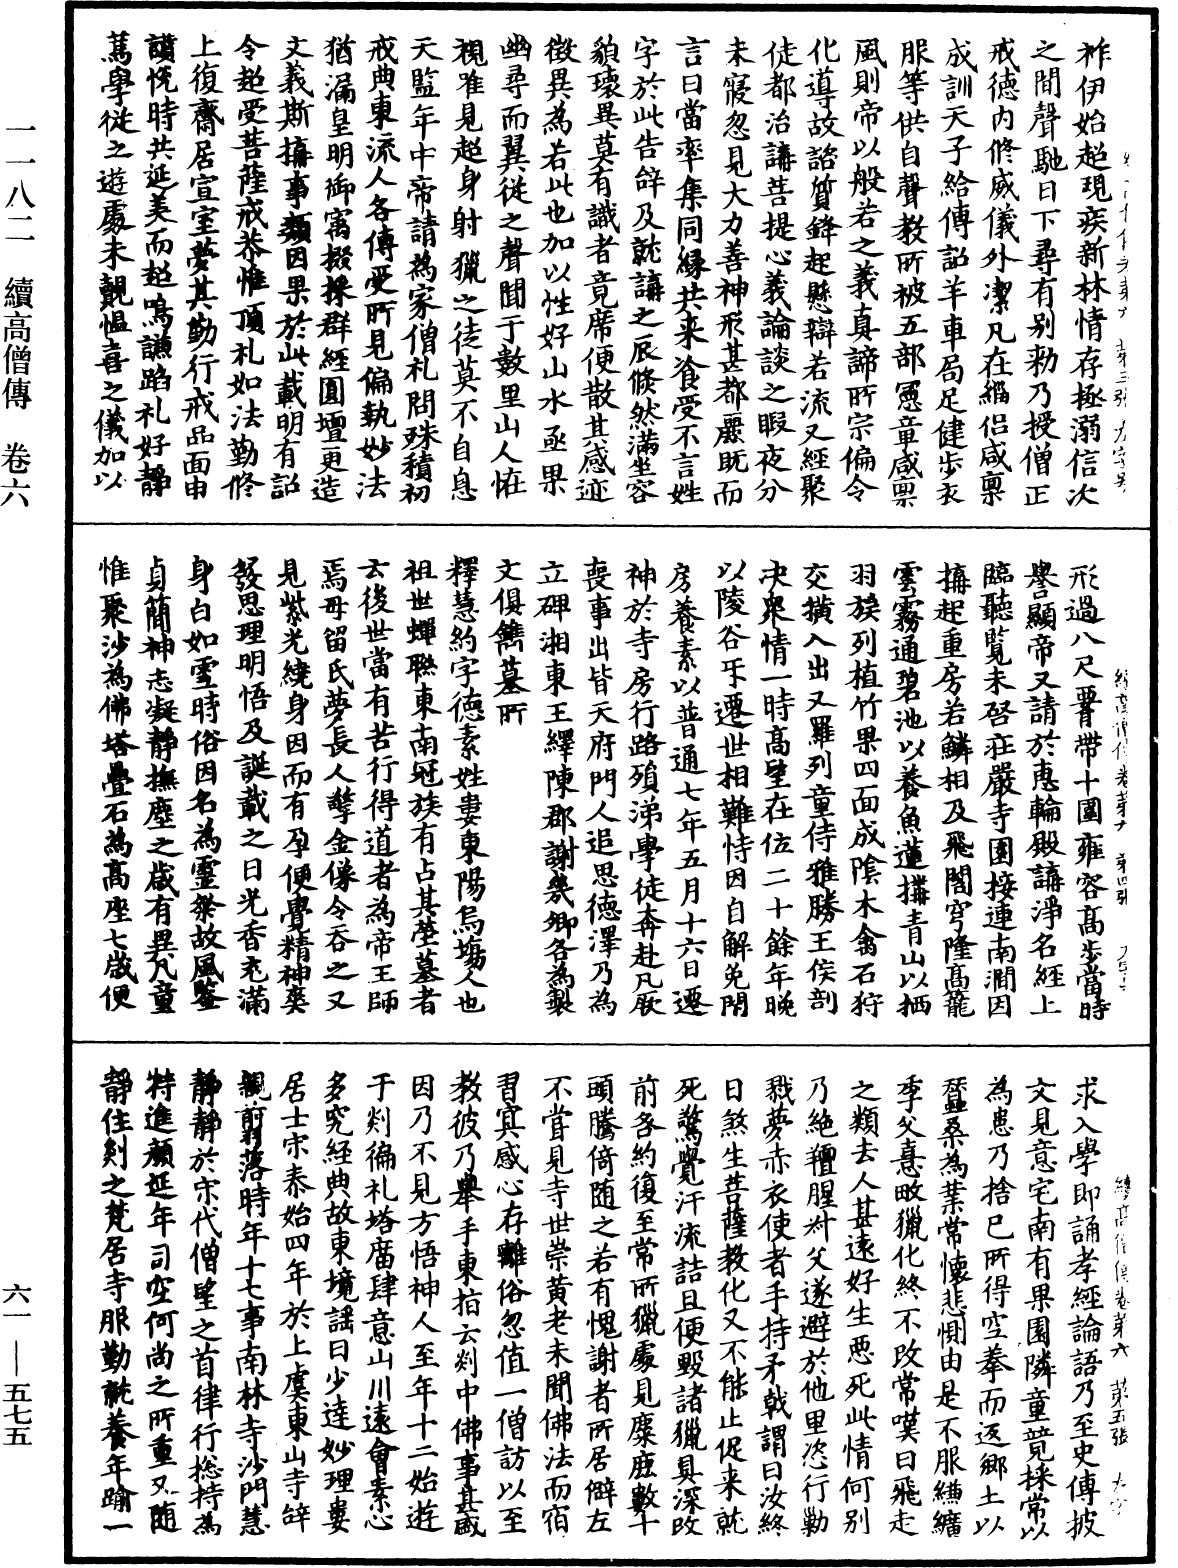 一一八二　續高僧傳　卷六
祚伊始超現疾新林情存極溺信次
之間聲馳日下尋有别勑乃授僧正
戒德内脩威儀外潔凡在緇侣咸禀
成訓天子給傅詔羊車局足健步衣
服等供自聲教所被五部憲章咸禀
風則帝以般若之義真諦所宗偏令
化導故諮質鋒起懸辯若流又經聚
徒都治講菩提心義論談之暇夜分
未寢忽見大力善神形甚都麗既而
言曰當率集同緣共来飡受不言姓
字於此告辞及就講之辰倏然滿坐容
貌瓌異莫有識者竟席便散其感迹
徵異為若此也加以性好山水亟果
幽尋而翼從之聲聞于數里山人怪
視唯見超身射獵之徒莫不自息
天監年中帝請為家僧礼問殊積初
戒典東流人各傳受所見偏執妙法
猶漏皇明御㝢掇採群經圓壇更造
文義斯搆事類因果於此載明有詔
令超受菩薩戒恭惟頂礼如法勤脩
上復齋居宣室夢其勤行戒品面申
讃悦時共延美而超鳴謙蹈礼好静
篤學從之遊處未覩愠喜之儀加以
形過八尺署帶十圍雍容高步當時
譽顯帝又請於惠輪殿講淨名經上
臨聽覽未啓莊嚴寺園接連南澗因
搆起重房若鱗相及飛閣穹隆高籠
雲霧通碧池以養魚蓮搆青山以栖
羽族列植竹果四面成陰木禽石狩
交横入出又羅列童侍雅勝王侯剖
决衆情一時高望在位二十餘年晚
以陵谷㸦遷世相難恃因自解免閇
房養素以普通七年五月十六日遷
神於寺房行路殞涕學徒奔赴凡厥
喪事出皆天府門人追思德澤乃為
立碑湘東王繹陳郡謝幾卿各為製
文俱鐫墓所
釋慧約字德素姓婁東陽烏塲人也
祖世蟬聯東南冠族有占其塋墓者
云後世當有苦行得道者為帝王師
焉母留氏夢長人擎金像令吞之又
見紫光繞身因而有孕便覺精神爽
發思理明悟及誕載之日光香充滿
身白如雪時俗因名為靈粲故風鑒
貞簡神志凝静撫塵之歲有異凡童
惟聚沙為佛塔疊石為高座七歲便
求入學即誦孝經論語乃至史傳披
文見意宅南有果園隣童競採常以
為患乃捨已所得空拳而返鄉土以
蠶桑為業常懷悲惻由是不服縑纊
季父憙畋獵化終不改常嘆曰飛走
之類去人甚遠好生惡死此情何别
乃絶羶腥叔父遂避於他里恣行勦
戮夢赤衣使者手持矛戟謂曰汝終
日煞生菩薩教化又不能止促来就
死驚覺汗流詰旦便毀諸獵具深改
前咎約復至常所獵處見麋鹿數十
頭騰倚随之若有愧謝者所居僻左
不嘗見寺世崇黄老未聞佛法而宿
習冥感心存離俗忽值一僧訪以至
教彼乃舉手東指云剡中佛事甚盛
因乃不見方悟神人至年十二始遊
于剡徧礼塔廟肆意山川遠會素心
多究經典故東境謡曰少達妙理婁
居士宋泰始四年於上虞東山寺辞
親剪落時年十七事南林寺沙門慧
静静於宋代僧望之首律行揔持為
特進顔延年司空何尚之所重又随
静住剡之梵居寺服勤就養年踰一
六一—五七五